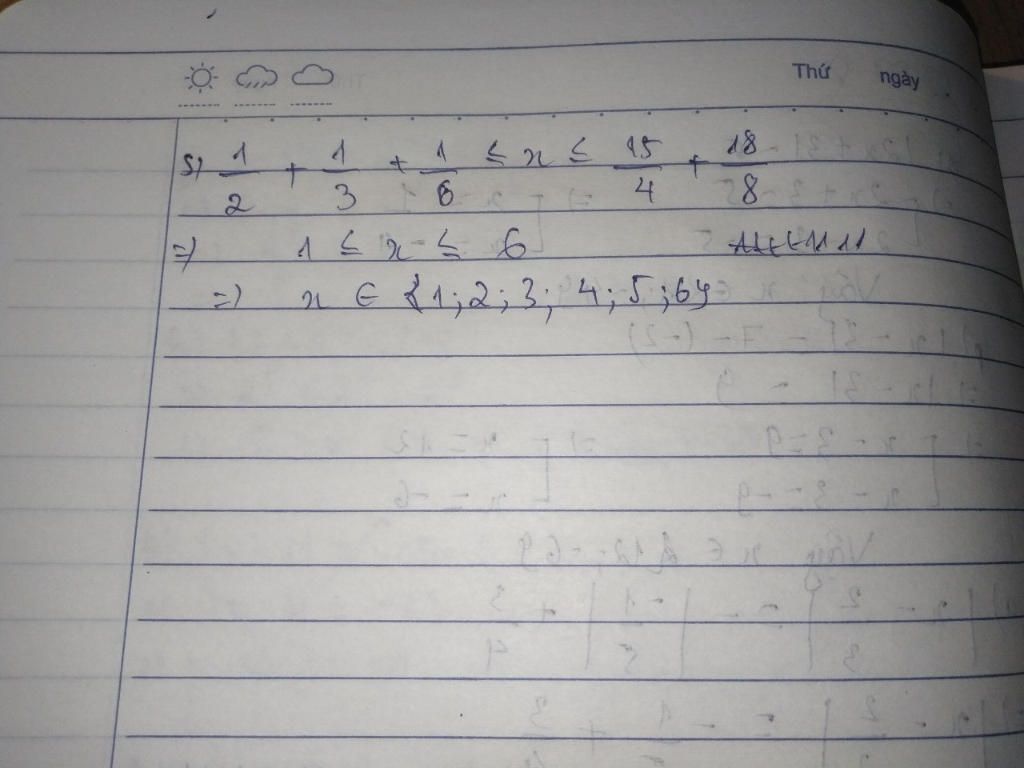 Thứ ngày
s) 1/2 + 1/3 + 1/6 ≤ x ≤ 15/4 + 18/8
=) 1 ≤ x ≤ 6
=) x ∈ {1; 2; 3; 4; 5; 6}